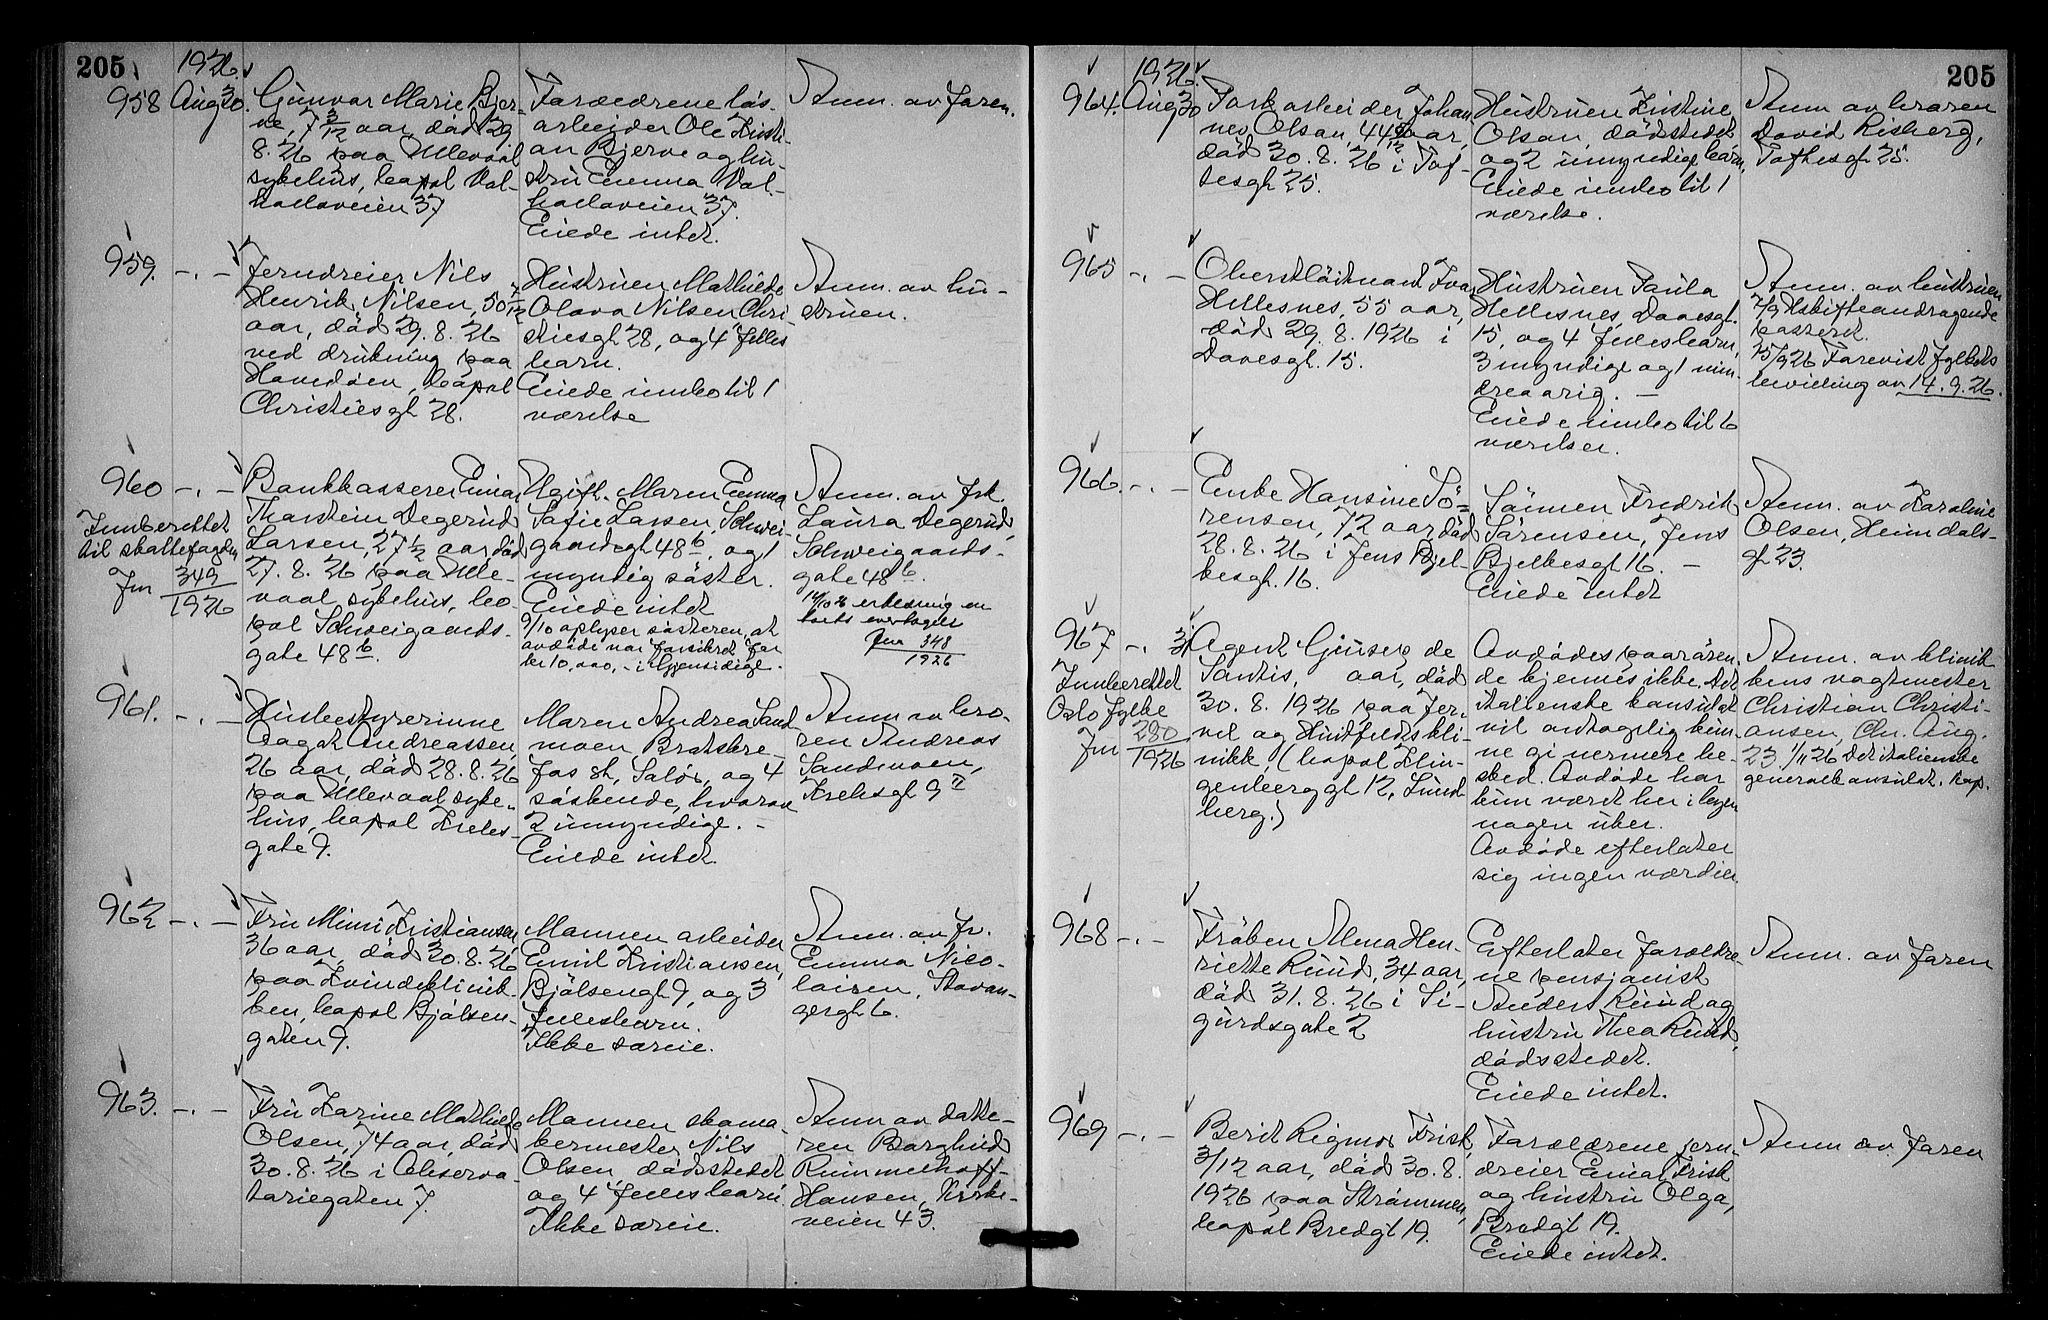 205
1926.
958
Aug 30.
Gunvor Marie Bjer-
ve, 7 3/12 aar, död 29
8. 26 paa Ullevaal
sykehus, bopæl Val-
hallaveien 37
Forældrene løs-
arbeider Ole Kristi-
an Bjerve og hu-
stru Emma Val-
hallaveien 37.
Eiede intet.
Anm. av faren.
959. -.-
Jerndreier Nils
Henrik Nilsen, 50 7/12
aar, död 29. 8. 26
ved drukning paa
Hovedöen, bopæl
Christiesgt 28.
Hustruen Mathilde
Olava Nilsen Chri-
stiesgt 28, og 4 fælles
barn.
Eiede innbo til 1
værelse
Anm. av hu-
struen.
960 -.-
Innberettet
til skattefogden
Jnr 349/1926
Bankkasserer Einar
Thorstein Degerud
Larsen, 27 1/2 aar, död
27. 8. 26 paa Ulle-
vaal sykehus, bo-
pæl Schweigaards-
gate 48 b.
Ugift. Moren Emma
Sofie Larsen, Schwei-
gaardsgt 48 b, og 1
myndig söster.
Eiede intet
9/10 oplyser søsteren, at
avdöde var forsikret for
kr 10,000,- i Gjensidige.
Anm. av frk.
Laura Degerud,
Schweigaards-
gate 48 b.
Jnr 348/1926
961. -.-
Husbestyrerinne
Aagot Andreassen,
26 aar, död 28. 8. 26
paa Ullevaal syke-
hus, bopæl Krebs-
gate 9.
Moren Andrea Sand-
moen Bratsbre-
fos st, Solör, og 4
søskende, hvorav
2 umyndige. -
Eiede intet.
Anm av bro-
ren Andreas
Sandmoen,
Krebsgt 9 II
962 -.-
Fru Mimi Kristiansen,
36 aar, död 30. 8. 26
paa Kvindeklinik-
ken, bopæl Bjölsen-
gaten 9.
Mannen arbeider
Emil Kristiansen,
Bjölsengt 9, og 3
fellesbarn.
Ikke særeie.
Anm. av fr.
Emma Nico-
laisen, Stavan-
gergt 6.
963. -.-
Fru Karine Mathilde
Olsen, 74 aar, död
30. 8. 26 i Observa-
toriegaten 7.
Mannen skoma-
kermester Nils
Olsen, dödsstedet
og 4 fellesbarn.
Ikke særeie.
Anm av datte-
ren Borghild
Rummelhoff-
Hansen, Kirke-
veien 43.
205
1926.
964.
Aug 30
Torkarbeider Johan-
nes Olsen, 44 aar,
död 30. 8. 26 i Tof-
tesgt 25.
Hustruen Kristine
Olsen, dödsstedet
og 2 umyndige barn,
Eiede innbo til 1
værelse.
Anm av broren
David Risberg,
Toftesgt 25.
965 -.-
Oberstlöitnant Ivar
Hellesnes, 55 aar,
död 29. 8. 1926 i
Dovesgt. 15.
Hustruen Paula
Hellesnes, Dovesgt.
15, og 4 fellesbarn,
3 myndige og 1 min-
dreaarig. -
Eiede innbo til 6
værelser.
Anm. av hustruen
7/9 Uskifteandragende
passeret
15/9 26 Forevist fylkets
bevilling av 14. 9. 26.
966. -.-
Enke Hansine Sö-
rensen, 72 aar, död
28. 8. 26 i Jens Bjel-
kesgt. 16.
Sönnen Fredrik
Sörensen, Jens
Bjelkesgt 16. -
Eiede intet
Anm. av Karoline
Olsen, Heimdals-
gt 23.
967 -.- 31
Innberettet
Oslo fylke
Jnr 280/1926
Agent Giusep de
Santis, aar, död
30. 8. 1926 paa Jer-
vel og Huitfeldts kli-
nikk (bopæl Klin-
genberggt 12, Lund-
berg.)
Avdödes paarören-
de kjennes ikke. Det
italienske konsulat
vil antagelig kun-
ne gi nermere be-
sked. Avdöde har
kun været her i byen
nogen uker.
Avdöde efterlater
sig ingen værdier.
Anm. av klinik-
kens vagtmester
Christian Christi-
ansen, Chr. Aug.
23. 1/11 26 Det italienske
generalkonsulat. Kop.
968 -.-
Fröken Alma Hen-
riette Ruud, 34 aar,
död 31. 8. 26 i Si-
gurdsgate 2
Efterlater foreldre-
ne pensjonist
Anders Ruud og
hustru Thea Ruud,
dödsstedet.
Eiede intet.
Anm. av faren
969 -.-
Berit Rigmor Frisk,
3/12 aar, död 30. 8.
1926 paa Strömmen,
bopæl Bredgt 19.
Forældrene jern-
dreier Einar Frisk
og hustru Olga,
Bredgt 19.
Eiede intet.
Anm av faren